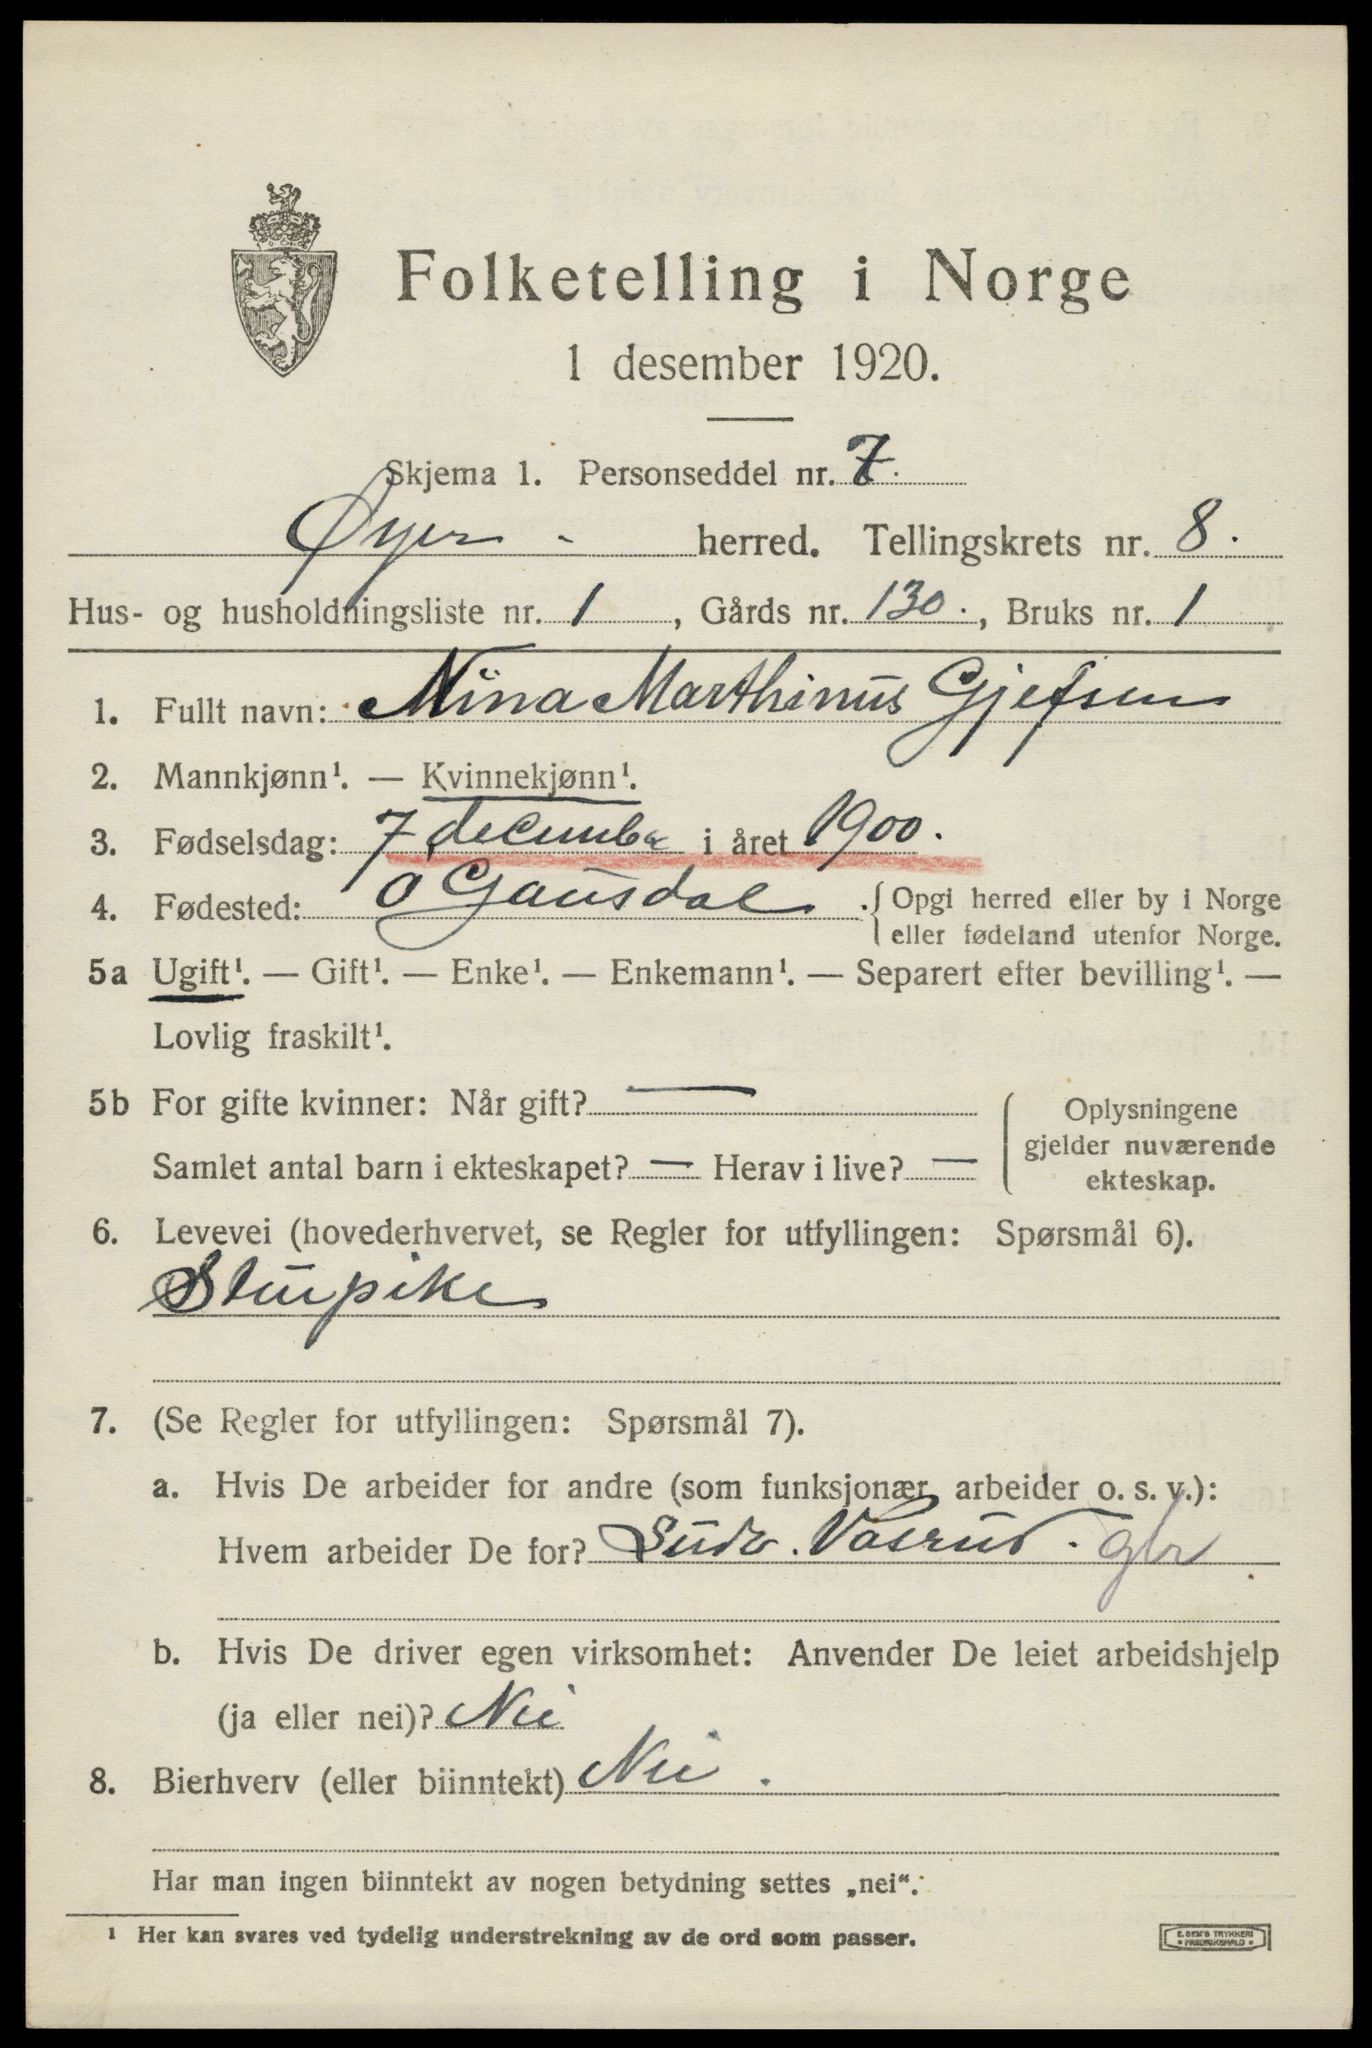 Folketelling i Norge
1 desember 1920.
Skjema 1. Personseddel nr. 7.
Øyer - herred. Tellingskrets nr. 8.
Hus- og husholdningsliste nr. 1, Gårds nr. 130., Bruks nr. 1
1. Fullt navn: Nina Marthinus Gjefsen
2. Mannkjønn¹. — Kvinnekjønn¹.
3. Fødselsdag: 7 december i året 1900.
4. Fødested: Ø Gausdal. { Opgi herred eller by i Norge
eller fødeland utenfor Norge.
5a Ugift¹. — Gift¹. — Enke¹. — Enkemann¹. — Separert efter bevilling¹. —
Lovlig fraskilt¹.
5b For gifte kvinner: Når gift? —
Samlet antal barn i ekteskapet? — Herav i live? —
Oplysningene
gjelder nuværende
ekteskap.
6. Levevei (hovederhvervet, se Regler for utfyllingen: Spørsmål 6).
Stuepike
7. (Se Regler for utfyllingen: Spørsmål 7).
a. Hvis De arbeider for andre (som funksjonær, arbeider o. s. v.):
Hvem arbeider De for? Ludv. Vasrud. gbr
b. Hvis De driver egen virksomhet: Anvender De leiet arbeidshjelp
(ja eller nei)? Nei
8. Bierhverv (eller biinntekt) Nei.
Har man ingen biinntekt av nogen betydning settes „nei“.
¹ Her kan svares ved tydelig understrekning av de ord som passer.
E. SEM'S TRYKKERI
• FREDRIKSHALD •